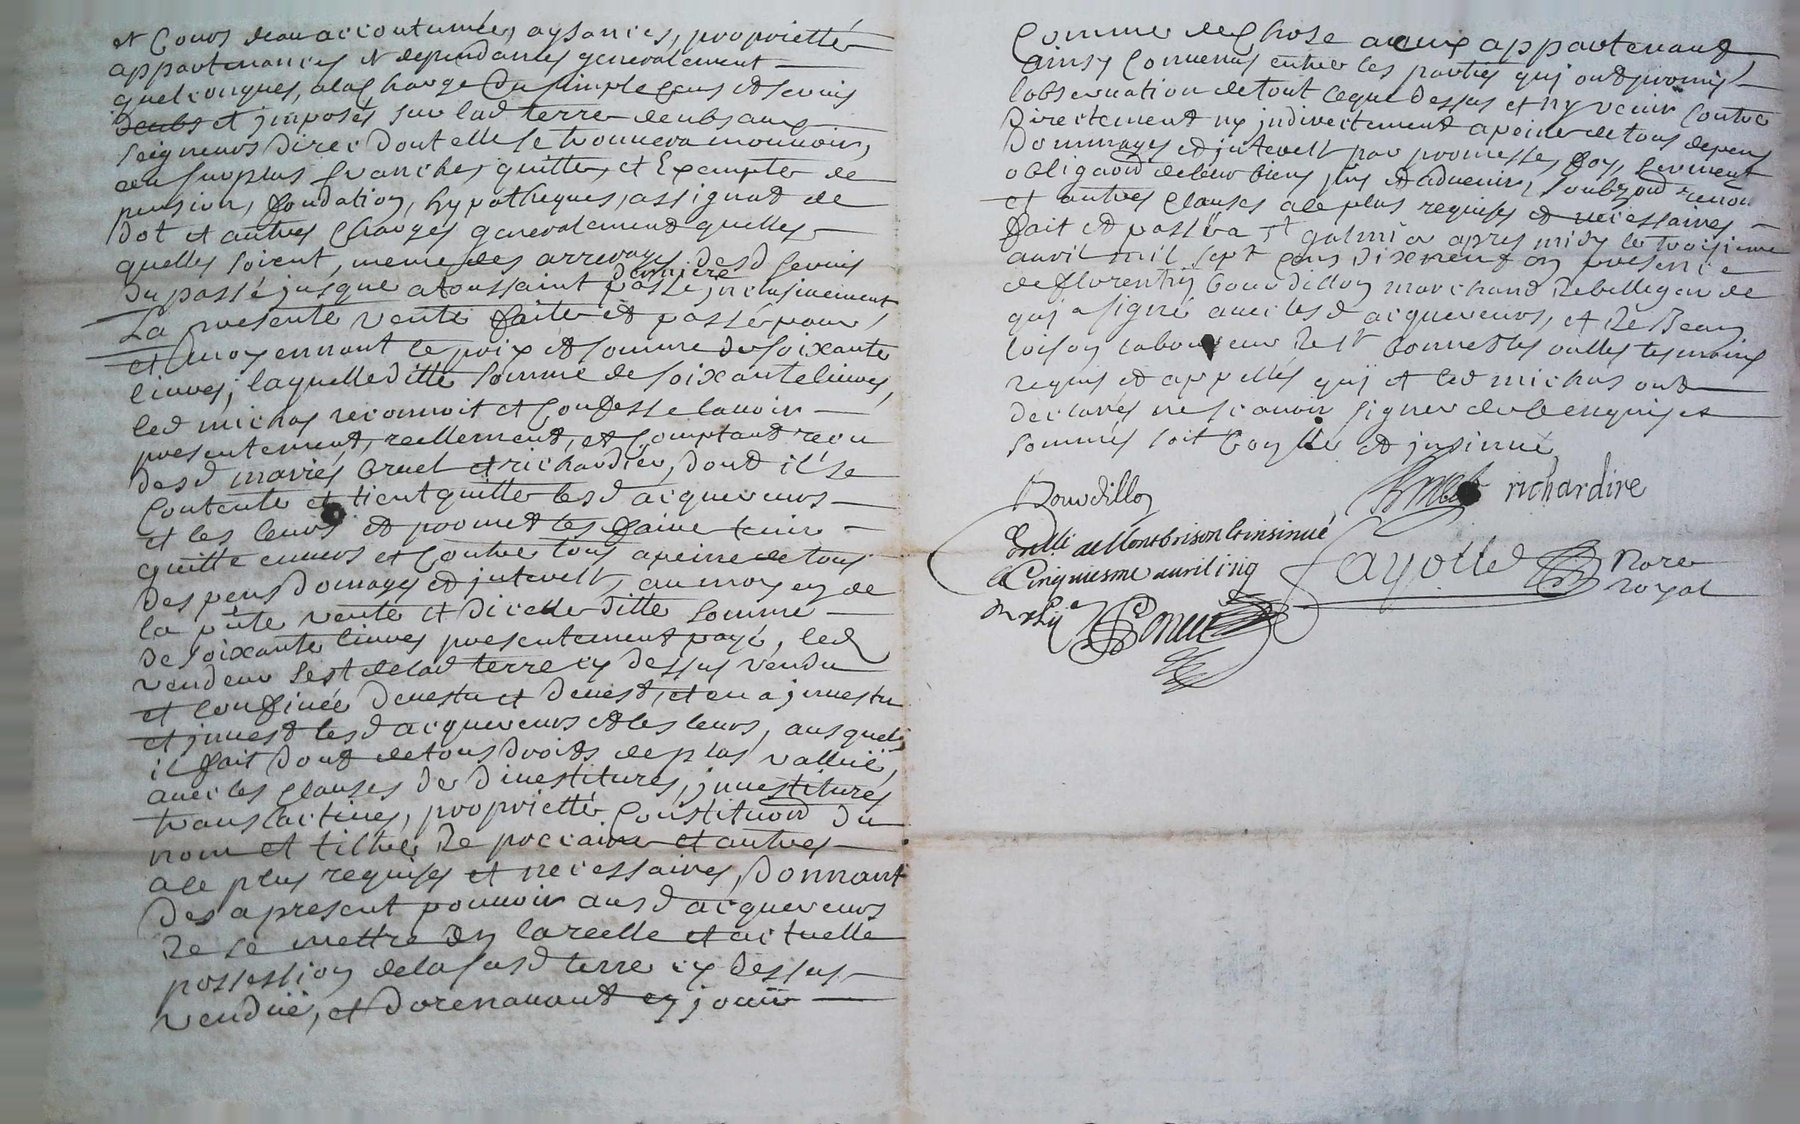 et Cours deau accoutumées, aysances, proprietté
appartenances et dependances generalement
quelconques, alacharge du simple cens et servis
deubs et jmposés sur lad terre deubs aux
seigneurs direc dont elle se trouvera mouvoir,
au surplus franche, quitte, et Exempte de
pension, fondation, hypotheques, assignat de
dot et autres charges generalement quelles
quelles soient, meme des arrerages desd servis
du passé jusque atoussaint derniere passé jnclusivement
La presente vente faite et passée pour
et moyennant le prix et somme de soixante
livres; laquelle ditte somme de soixante livres,
led michas reconnoit et Confesse lavoir
presentement, reellement, et Comptant reçu
desd mariés bruel et richardier, dont il se
Contente et tient quitte lesd acquereurs
et les leurs et promet les faire tenir
quitte envers et Contre tous apeine de tous
despens domages et jnterest, au moyen de
la pnte vente et dicelle ditte somme
de soixante livres presentement payé, led
vendeur sest de lad terre cy dessus vendu
et confinée devestu et devest, et en a jnvestu
et jnvest lesd acquereurs et les leurs, ausquels
il fait dont de tous droits de plus vallüe,
avec les clauses de divestitures, jnvestitures
translactives, proprietté Constituõn du
nom et tiltre de precaire et autres
ale plus requises et necessaires, Donnant
des apresent pouvoir ausd acquereurs
de se mettre en la reelle et actuelle
possession de la susd terre cy dessus
vendüe, et dorenavant en jouir
Comme de chose aeux appartenant
ainsy Convenus entre les parties qui ont promis
lobservation de tout ceque dessus et ny venir Contre
directement ny jndirectement apeine de tous depens
dommages et jnterest par promesses, foy, serment
obligaõn de leur biens, pns et advenir, soubz õn renon
et autres clauses ale plus requises et necessaires
fait et passé a st galmier apres midy le troisieme
avril mil sept cens dixneuf en presence
de florentin bourdillon marchand de bellegarde
qui a signé avec lesd acquereurs, et de Jean
loison laboureur de st bonnet les oulles tesmoins
requis et appellés qui et led michas ont
declarés ne scavoir signer de ce enquis et
sommés soit Conllé et jnsinué
Bourdillon
bruel richardire
Conllé a Montbrison et insinué
le Cinquiesme avril 1719
Fayolle Nore
royal